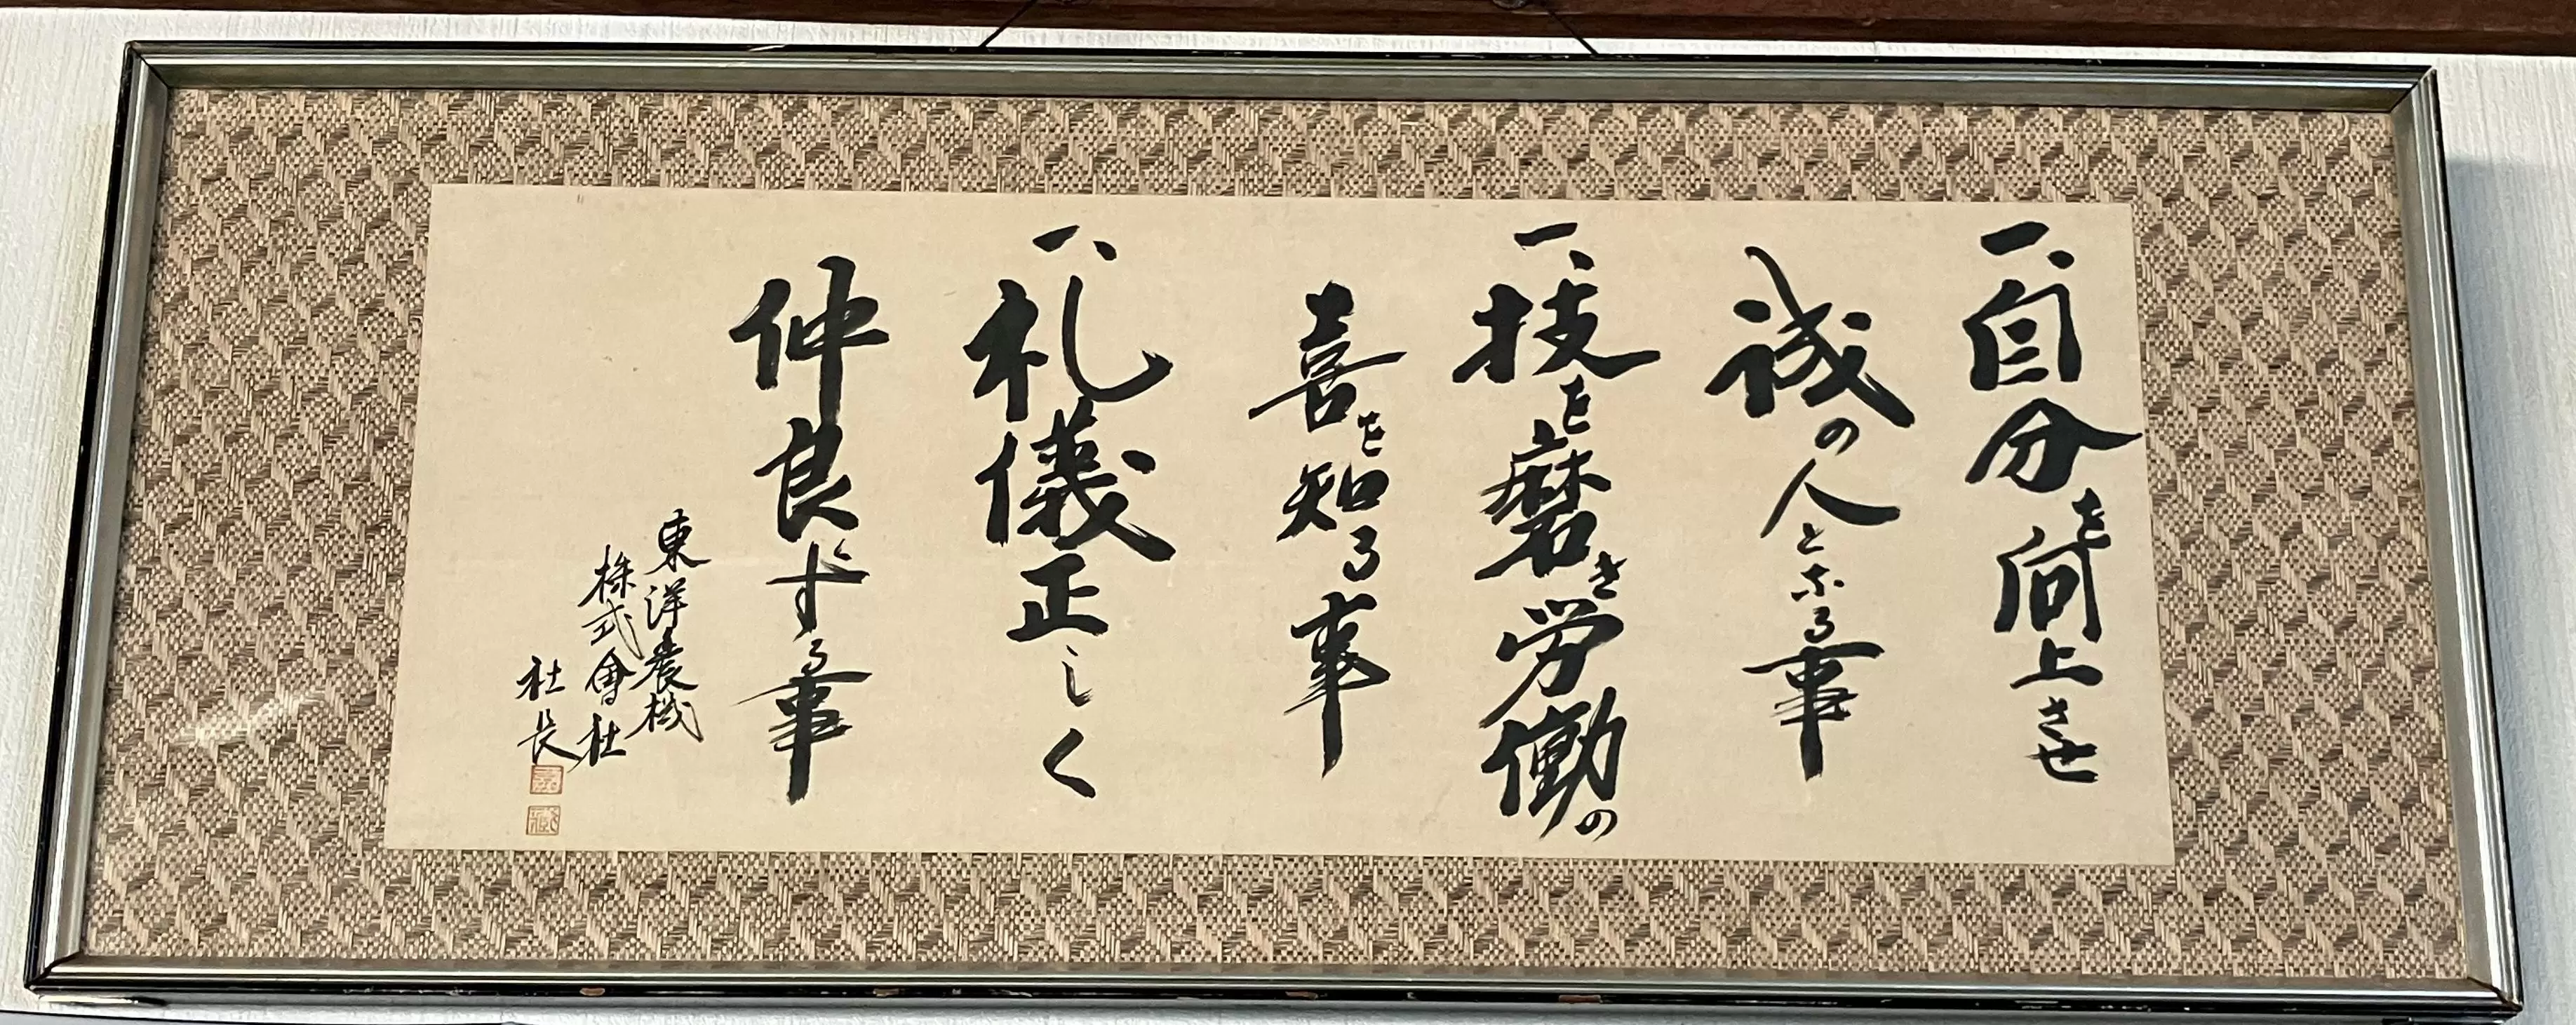 一、自分を向上させ
誠の人となる事
一、技を磨き労働の
喜を知る事
一、礼儀正しく
仲良ずる事
東洋農機
株式會社
社長